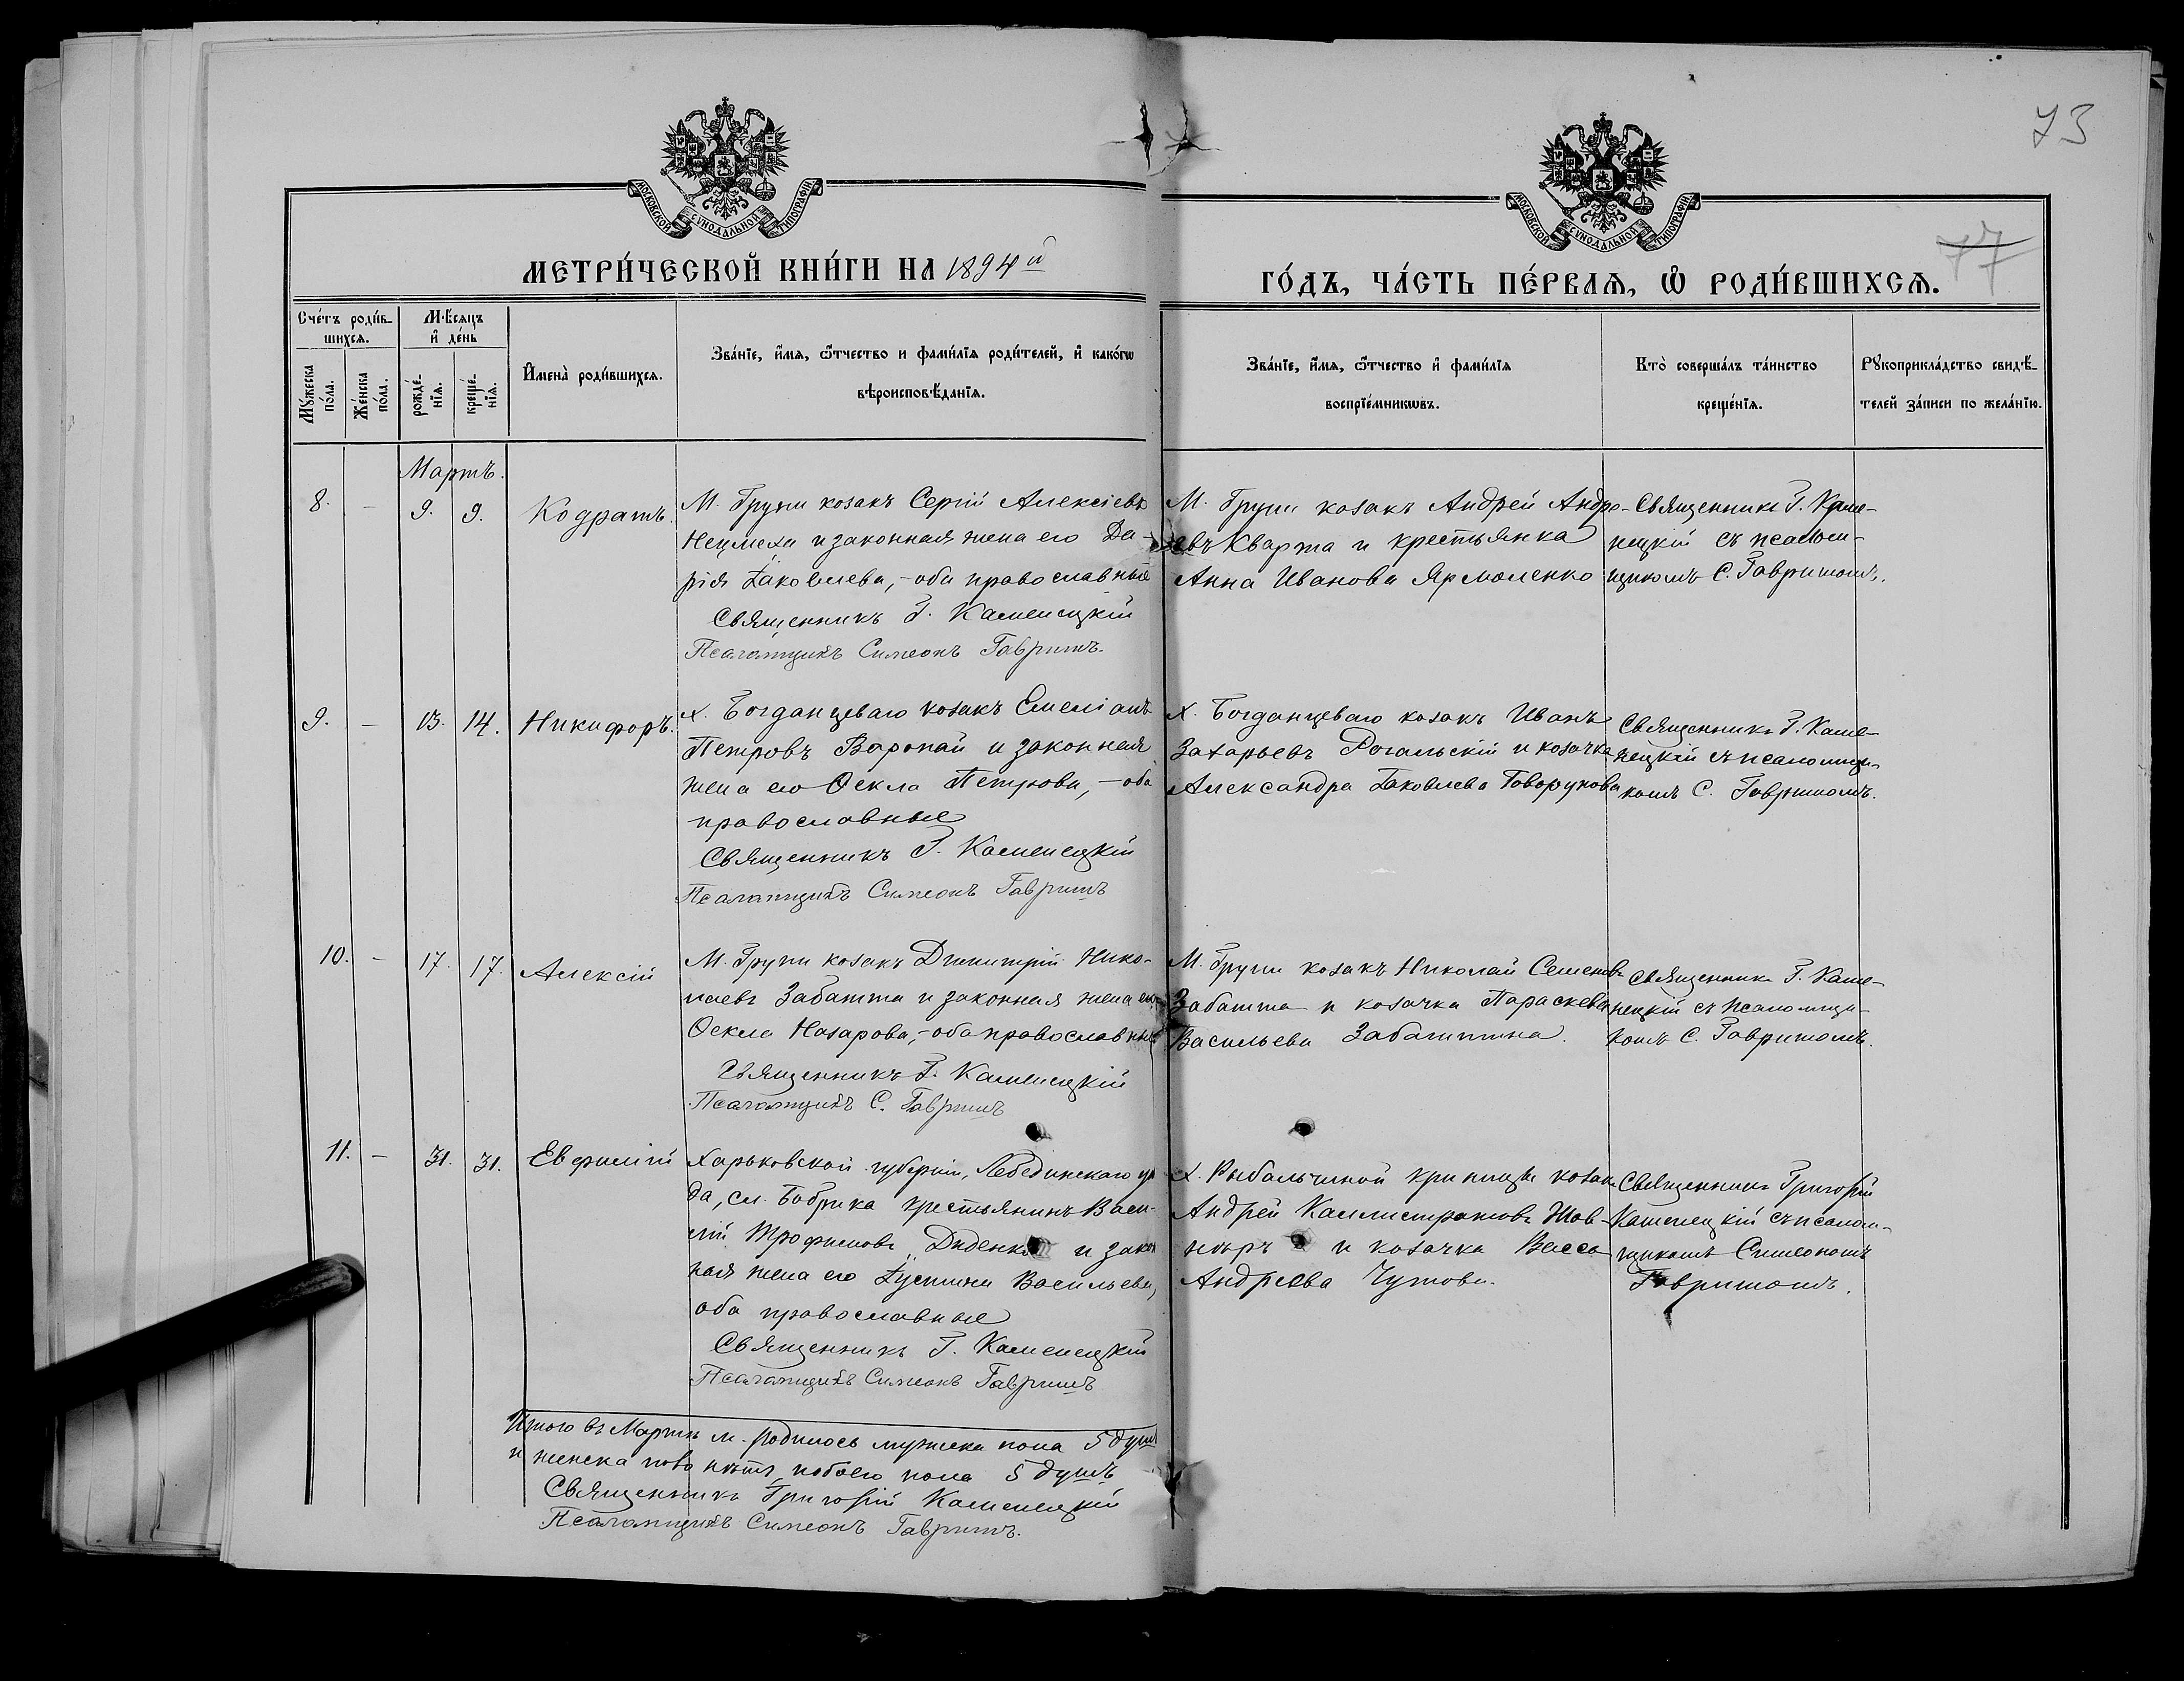 73
77
МОСКОВСКОЙ СѴНОДАЛЬНОЙ ТИПОГРАФІИ
МОСКОВСКОЙ СѴНОДАЛЬНОЙ ТИПОГРАФІИ
МЕТРИ́ЧЕСКОЙ КНИ́ГИ НА 1894й
ГО́ДЪ, ЧА́СТЬ ПЕ́РВАѦ, Ѽ РОДИ́ВШИХСѦ.
Сче́тъ роди́в-
шихсѧ.
Мꙋ́жеска
по́ла.
Же́нска
по́ла.
М́ѣсѧцъ
и҆ де́нь
рожде́-
нїѧ.
креще́-
нїѧ.
И҆мена̀ роди́вшихсѧ.
Зва́нїе, и҆́мѧ, ѻ҆́тчество и фами́лїѧ роди́телей, и҆ како́гѡ
вѣроисповѣ́данїѧ.
Зва́нїе, и҆́мѧ, ѻ҆́тчество и҆ фами́лїѧ
воспрїе́мникѡвъ.
Кто̀ соверша́лъ та́инство
креще́нїѧ.
Рꙋкоприкла́дство свидѣ́-
телей за́писи по жела́нїю.
Мартъ.
8. - 9. 9. Кодратъ.
М. Груни козакъ Сергій Алексіевъ
Нецмеха и законная жена его Да-
рія Іаковлева,- оба православные
Священникъ Г. Каменецкій
Псаломщикъ Симеонъ Гавришъ.
М. Груни козакъ Андрей Андре-
евъ Кварта и крестьянка
Анна Иванова Ярмоленко
Священникъ Г. Каме-
нецкій съ псалом-
щикомъ С. Гавришомъ.
9. - 13. 14. Никифоръ.
х. Богданцеваго козакъ Емеліанъ
Петровъ Варопай и законная
жена его Ѳекла Петрова, - оба
православные
Священникъ Г. Каменецкій
Псаломщикъ Симеонъ Гавришъ
х. Богданцеваго козакъ Иванъ
Захарьевъ Рогальскій и козачка
Александра Іаковлева Говорунова
Священникъ Г. Каме-
нецкій съ псаломщи-
комъ С. Гавришомъ.
10. - 17. 17. Алексій
М. Груни козакъ Димитрій Нико-
лаевъ Забашта и законная жена его
Ѳекла Назарова,- оба православные
Священникъ Г. Каменецкій
Псаломщикъ С. Гавришъ
М. Груни козакъ Николай Семеновъ
Забашта и козачка Параскева
Васильева Забаштина.
Священникъ Г. Каме-
нецкій съ псаломщи-
комъ С. Гавришомъ.
11. - 31. 31. Евфимій
Харьковской губерніи, Лебединскаго уѣ
да, сл. Бобрика крестьянинъ Васи-
лій Трофимовъ Диденко и закон
ная жена его Іустина Васильева,
оба православные
Священникъ Г. Каменецкій
Псаломщикъ Симеонъ Гавришъ
х. Рыбальчиной криницы козакъ
Андрей Каллистратовъ Жов-
нѣръ и козачка Васса
Андреева Чутова.
Священникъ Григорій
Каменецкій съ псалом-
щикомъ Симеономъ
Гавришомъ.
Итого въ Мартѣ м. родилось мужеска пола 5 душъ
и женска пола нѣтъ, обоего пола 5 душъ
Священникъ Григорій Каменецкій
Псаломщикъ Симеонъ Гавришъ.